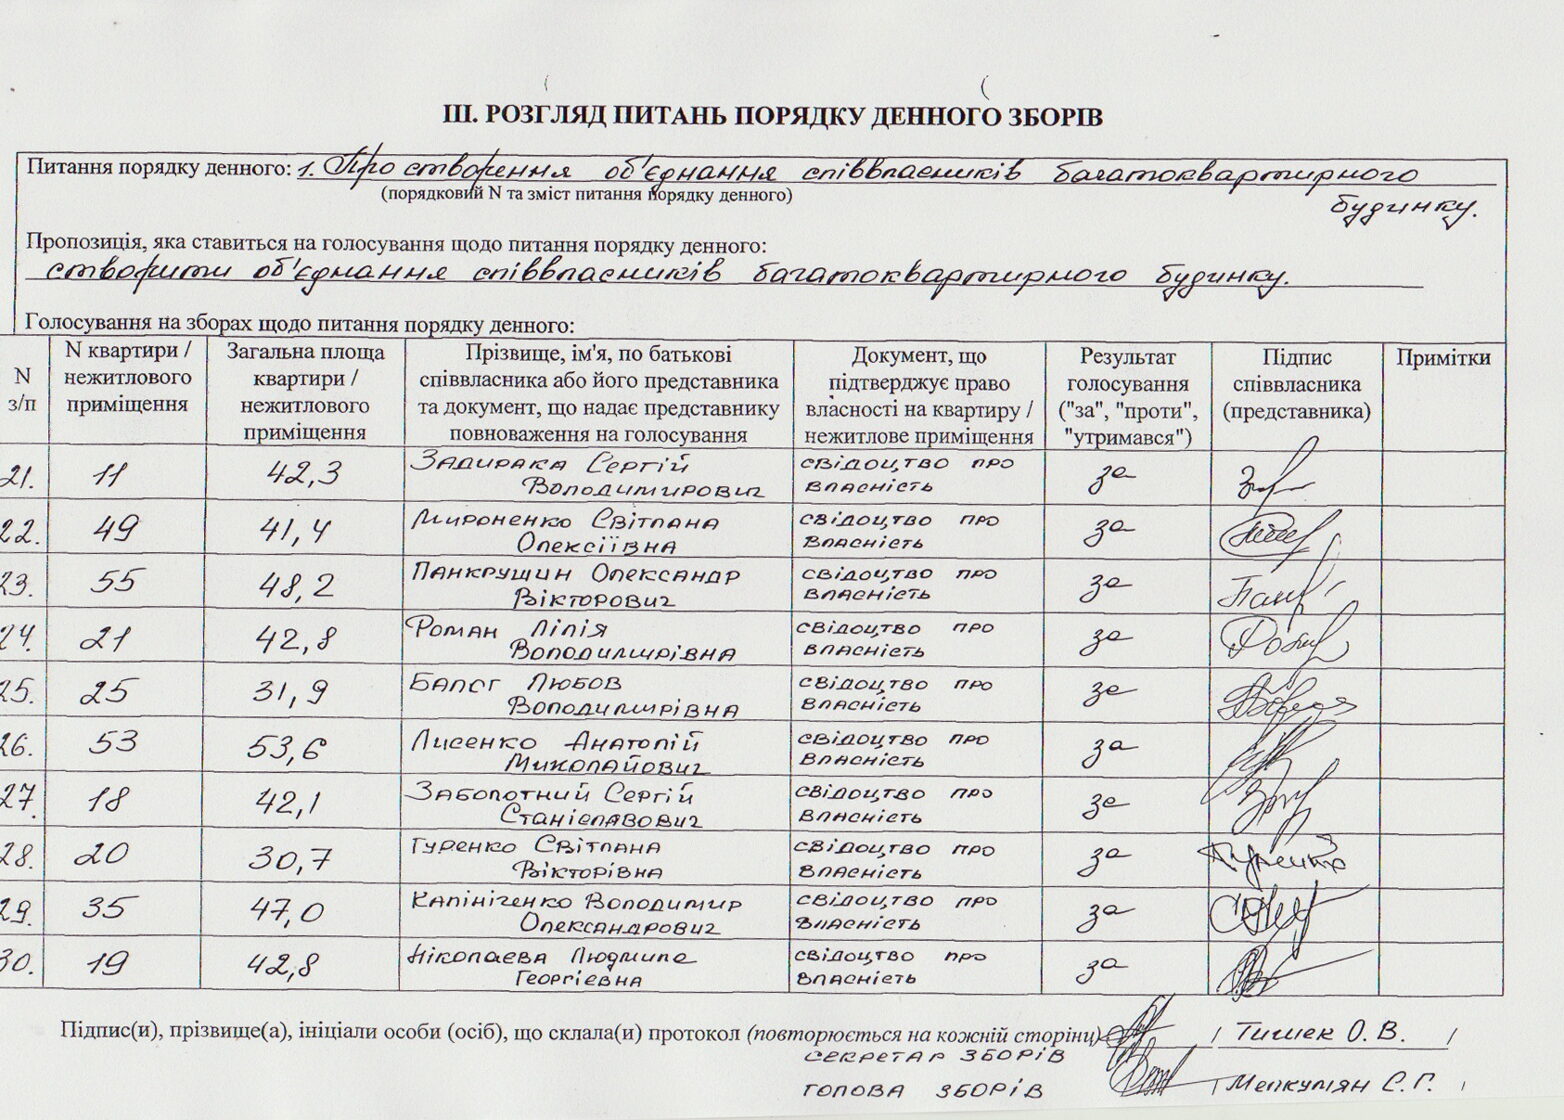 III. РОЗГЛЯД ПИТАНЬ ПОРЯДКУ ДЕННОГО ЗБОРІВ
Питання порядку денного: 1. Про створення об'єднання співвласників багатоквартирного
(порядковий N та зміст питання порядку денного)
будинку.
Пропозиція, яка ставиться на голосування щодо питання порядку денного:
створити об'єднання співвласників багатоквартирного будинку.
Голосування на зборах щодо питання порядку денного:
N з/п
N квартири / нежитлового приміщення
Загальна площа квартири / нежитлового приміщення
Прізвище, ім'я, по батькові співвласника або його представника та документ, що надає представнику повноваження на голосування
Документ, що підтверджує право власності на квартиру / нежитлове приміщення
Результат голосування ("за", "проти", "утримався")
Підпис співвласника (представника)
Примітки
21. 11 42,3 Задирака Сергій Володимирович свідоцтво про власність за
22. 49 41,4 Мироненко Світлана Олексіївна свідоцтво про власність за
23. 55 48,2 Панкрущин Олександр Вікторович свідоцтво про власність за
24. 21 42,8 Роман Лілія Володимирівна свідоцтво про власність за
25. 25 31,9 Балог Любов Володимирівна свідоцтво про власність за
26. 53 53,6 Лисенко Анатолій Миколайович свідоцтво про власність за
27. 18 42,1 Заболотний Сергій Станіславович свідоцтво про власність за
28. 20 30,7 Гуренко Світлана Вікторівна свідоцтво про власність за
29. 35 47,0 Калініченко Володимир Олександрович свідоцтво про власність за
30. 19 42,8 Ніколаева Людмила Георгіевна свідоцтво про власність за
Підпис(и), прізвище(а), ініціали особи (осіб), що склала(и) протокол (повторюється на кожній сторінці) / Тишек О.В. /
секретар зборів
голова зборів / Мелкумян С.Г. /